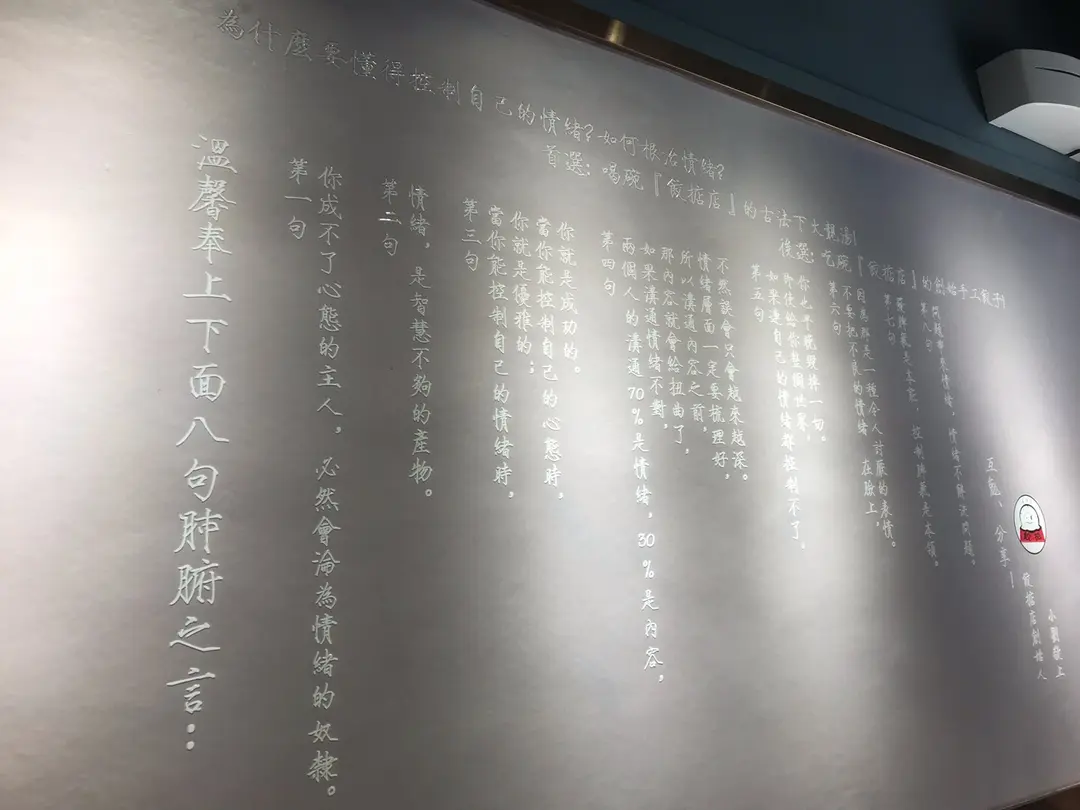 為什麼要懂得控制自己的情緒?如何根治情緒?
首選:喝碗『餃掂店』的古法下火靚湯!
後選:吃碗『餃掂店』的創始手工餃子!
溫馨奉上下面八句肺腑之言:
第一句
你成不了心態的主人,必然會淪為情緒的奴隸。
第二句
情緒,是智慧不夠的產物。
第三句
當你能控制自己的情緒時,
你就是優雅的;
當你能控制自己的心態時,
你就是成功的。
第四句
兩個人的溝通70%是情緒,30%是內容,
如果溝通情緒不對,
那內容就會給扭曲了,
所以溝通內容之前,
情緒層面一定要梳理好,
不然誤會只會越來越深。
第五句
如果連自己的情緒都控制不了,
即使給你整個世界,
你也早晚毀掉一切。
第六句
不要把不良的情緒在臉上,
因為那是一種令人討厭的表情。
第七句
發脾氣是本能,控制脾氣是本領。
第八句
問題帶來情緒,情緒不解決問題。
互勉、分享!
餃掂店創始人
小劉敬上